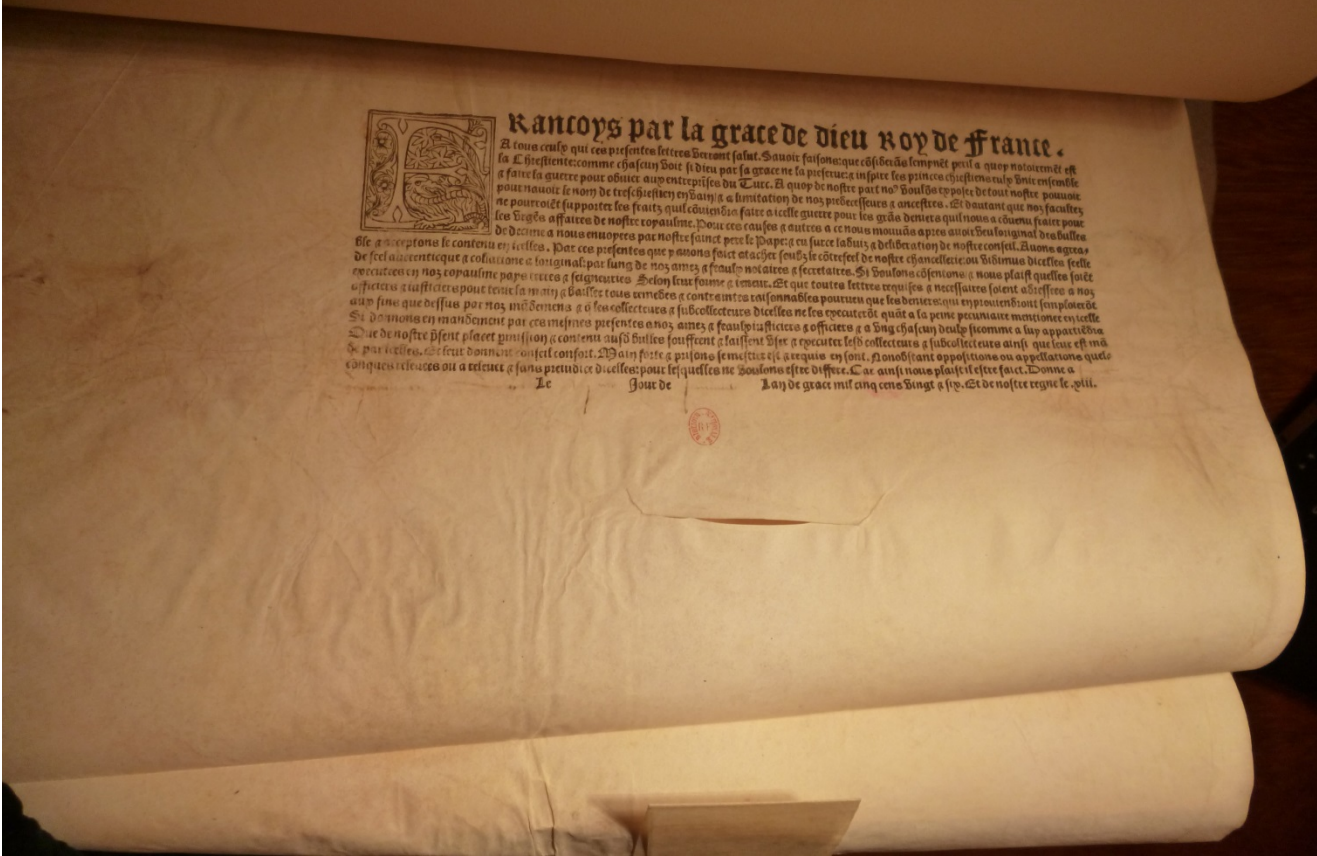 FRancoys par la grace de dieu Roy de France.
A tous ceulx qui ces presentes lettres verront salut. Savoir faisons: que cõsiderãs leminẽt peril a quoy notoiremẽt est
la Chrestiente: comme chascun voit si dieu par sa grace ne la preserue: ⁊ inspire les princes chrestiens eulx vnir ensemble
⁊ faire la guerre pour obuier aux entreprises du Turc. A quoy de nostre part noꝰ voulõs exposer de tout nostre pouuoir
pour nauoir le nom de treschrestien en vain: ⁊ a limitation de noz predecesseurs ⁊ ancestres. Et dautant que noz facultez
ne pourroiẽt supporter les fraitz quil cõuiendra faire a icelle guerre pour les grãs deniers quil nous a cõuenu fraire pour
les vrgẽs affaires de nostre royaulme. Pour ces causes ⁊ autres a ce nous mouuãs apres auoir veu loriginal des bulles
de decime a nous enuoyees par nostre sainct pere le Pape: ⁊ eu sur ce laduis ⁊ deliberation de nostre conseil. Auons agrea-
ble ⁊ acceptons le contenu en icelles. Par ces presentes que y auons faict atacher soubz le cõtreseel de nostre chancellerie: ou vidimus dicelles seelle
de seel autenticque ⁊ collatione a loriginal: par lung de noz amez ⁊ feaulx notaires ⁊ secretaires. Si voulons cõsentons ⁊ nous plaist quelles soiẽt
executees en noz royaulme pays terres ⁊ seigneuries Selon leur forme ⁊ teneur. Et que toutes lettres requises ⁊ necessaire soient adressees a noz
officiers ⁊ iusticiers pour tenir la main ⁊ bailler tous remedes ⁊ contraintes raisonnables pourueu que les deniers: qui en prouiendront semploierõt
aux fins que dessus par noz mãdemens ⁊ q̃ les collecteurs ⁊ subcollecteurs dicelles ne les executerõt quãt a la peine pecuniaire mentionee en icelle
Si donnons en mandement par ces mesmes presentes a noz amez ⁊ feaulx iusticiers ⁊ officiers ⁊ a vng chascun deulx sicomme a luy appartiẽdra
Que de nostre p̃sent placet p̃mission ⁊ contenu ausd̃ bulles souffrent ⁊ laissent vser ⁊ executer lesd̃ collecteurs ⁊ subcollecteurs ainsi que leur est mã
de par icelles. Et leur donnent conseil confort. Main forte ⁊ prisons se mestier est ⁊ requis en sont. Nonobstant oppositions ou appellations quelz
conques releuees ou a releuer ⁊ sans preiudice dicelles: pour lesquelles ne voulons estre differe. Car ainsi nous plaist il estre faict. Donne a
Le Jour de Lan de grace mil cinq cens vingt ⁊ six. Et de nostre regne le .xiii.